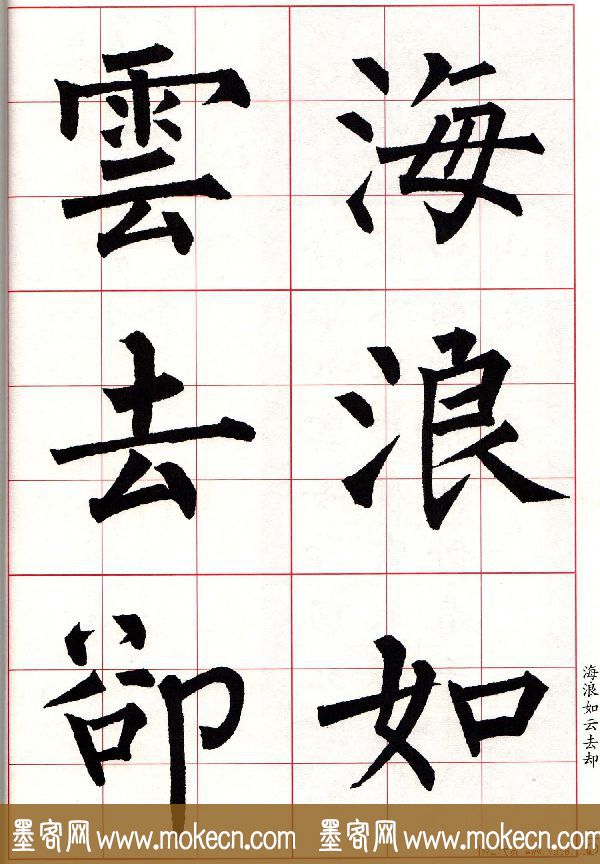 海浪如
雲去卻
海浪如云去却
墨客网 www.mokecn.com 墨客网 www.mokecn.com